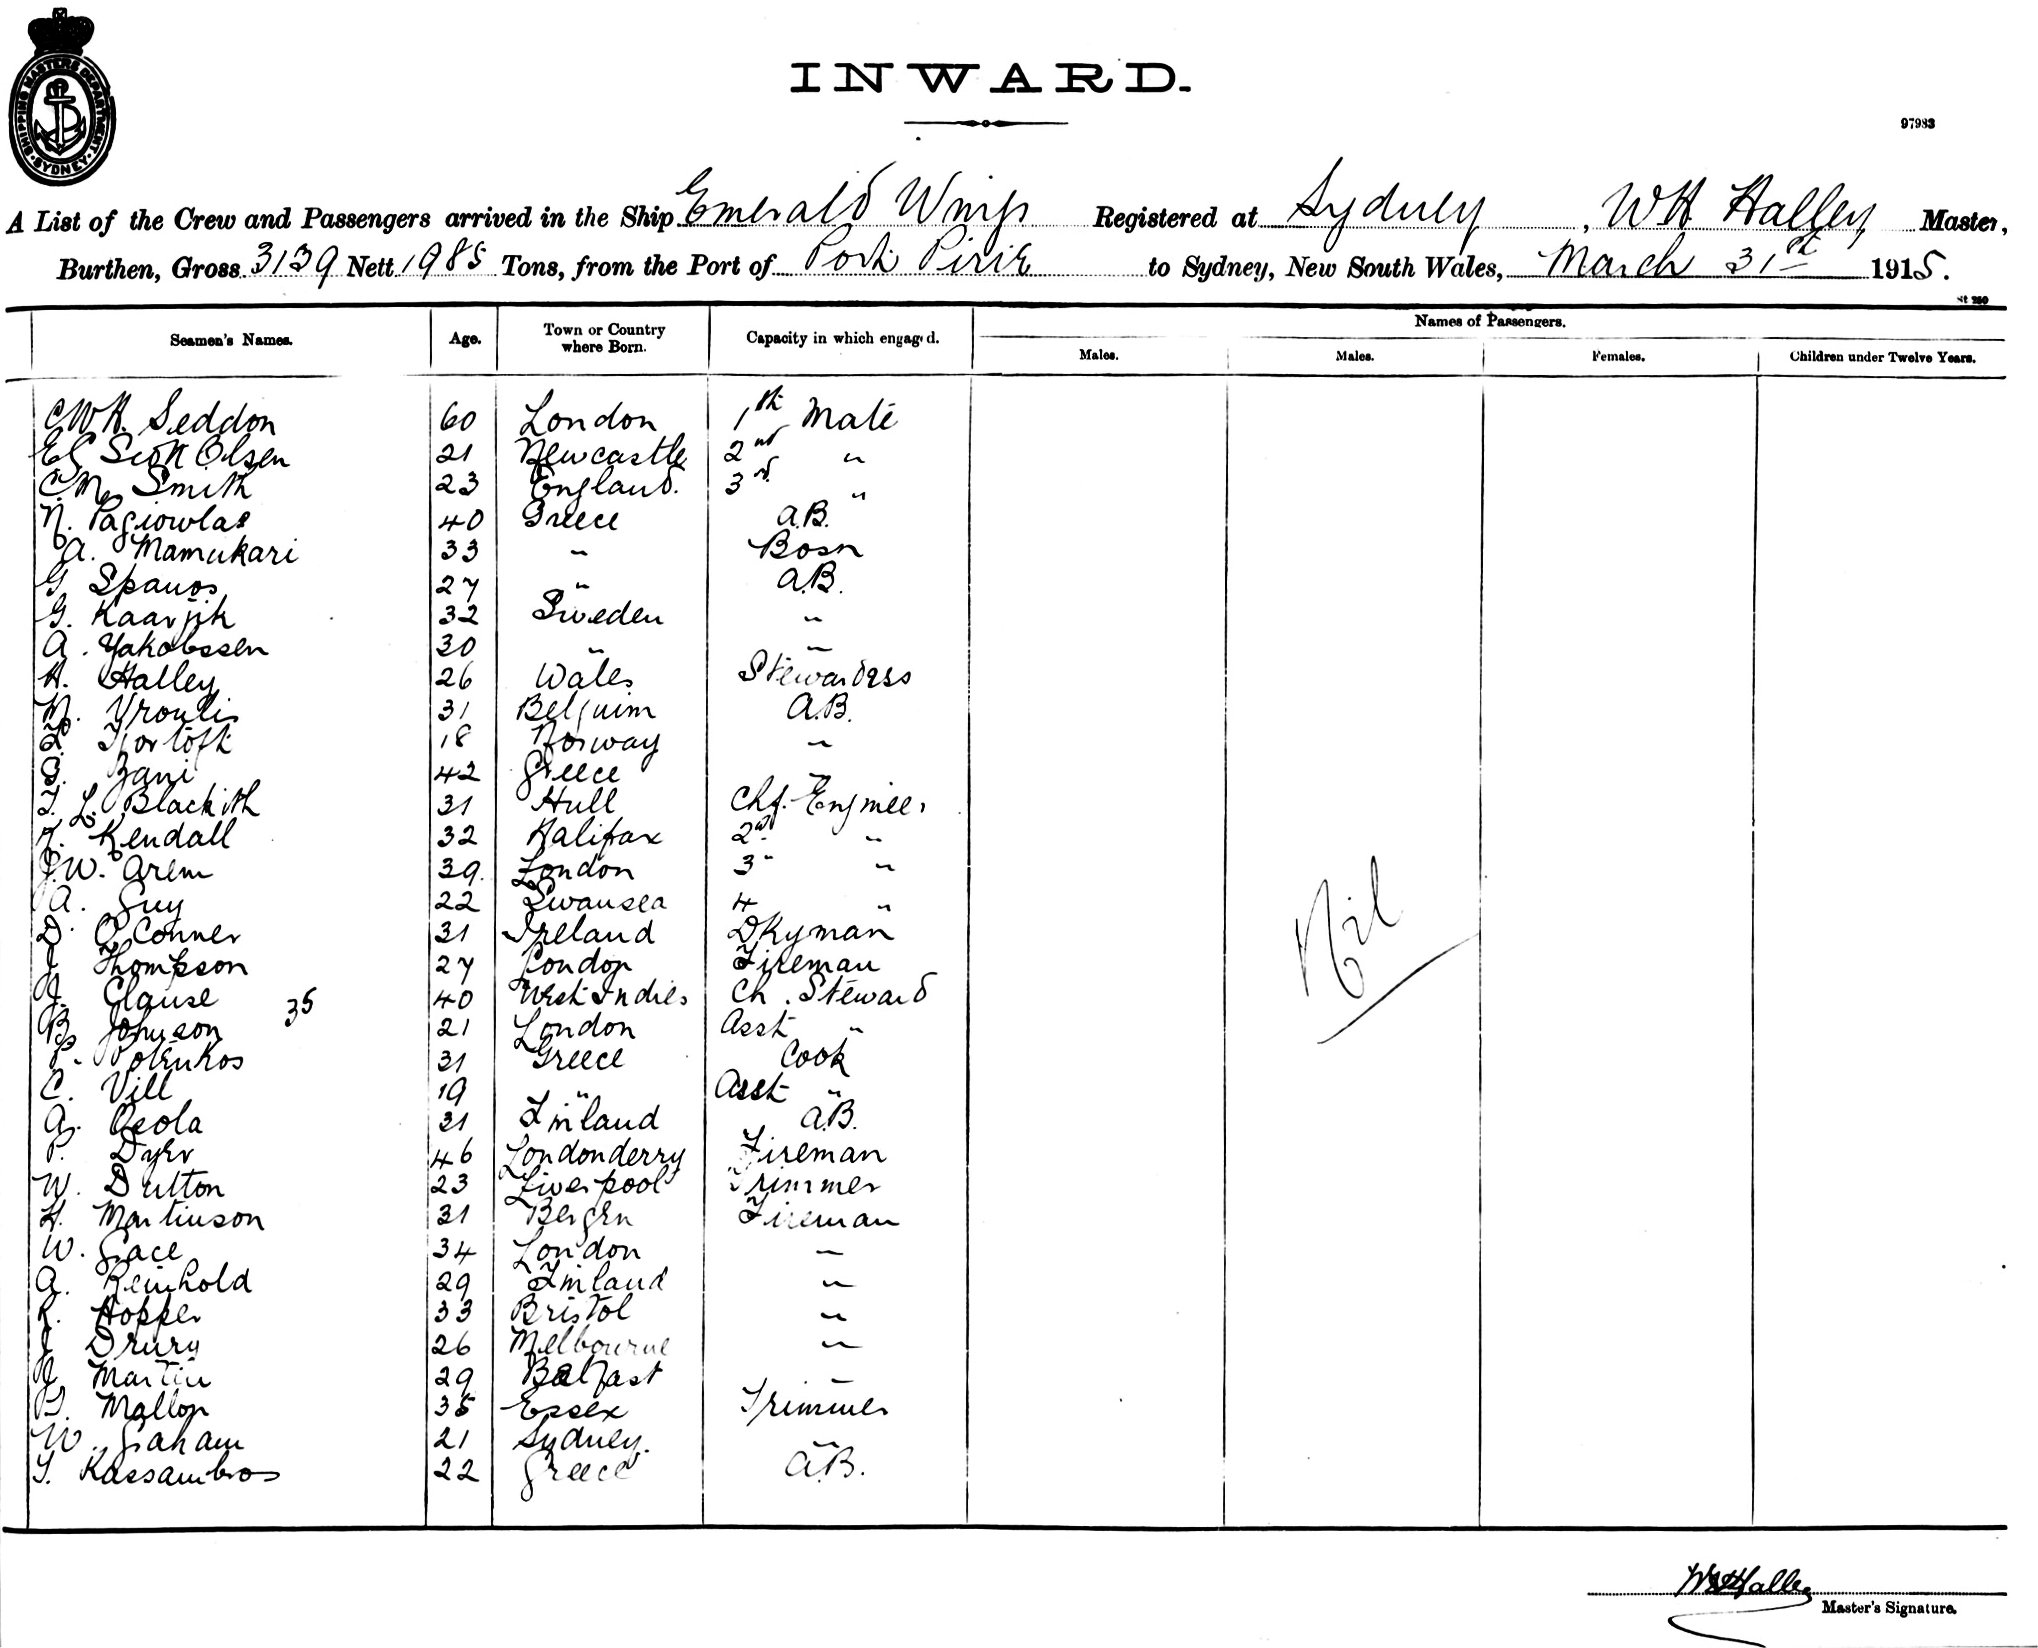 SHIPPING MASTERS DEPARTMENT SYDNEY
INWARD.
97983
A List of the Crew and Passengers arrived in the Ship Emerald Wings Registered at Sydney, W H Halley Master,
Burthen, Gross 3139 Nett 1985 Tons, from the Port of Port Pirie to Sydney, New South Wales, March 31st 1915.
St 250
Seamen's Names. Age. Town or Country where Born. Capacity in which engaged. Names of Passengers.
Males. Males. Females. Children under Twelve Years.
C W H. Seddon 60 London 1st Mate
E G Scott Olsen 21 Newcastle 2nd "
C. M. Smith 23 England. 3rd "
N. Pagiowlas 40 Greece A.B.
A. Mamukari 33 " Bosn
G Spanos 27 " A.B.
G. Kaarjik 32 Sweden "
A. Yakobssen 30 " "
H. Halley 26 Wales Stewardess
M. Vroulis 31 Belguim A.B.
18 Norway "
Zani 42 Greece
L. Blackith 31 Hull Chf. Engineer
Kendall 32 Halifax 2nd "
J. W. Arem 39. London 3 " "
A. Guy 22 Swansea 4 "
D. O Conner 31 Ireland Dkyman
J Thompson 27 London Fireman
J. Clause 35 40 West Indies Ch. Steward
B. Johnson 21 London Asst "
P. Polenkos 31 Greece Cook
C. Vill 19 " Asst "
A. Oeola 31 Finland A.B.
P. Dyer 46 Londonderry Fireman
W. Dutton 23 Liverpool Trimmer
H. Martinson 31 Bergen Fireman
W. Grace 34 London "
A. Reinhold 29 Finland "
R. Hopper 33 Bristol "
J Drury 26 Melbourne "
J Martin 29 Belfast "
Mallon 35 Essex Trimmer
W. Graham 21 Sydney. "
Kassambros 22 Greece A.B.
Nil
W H Halley
Master's Signature.